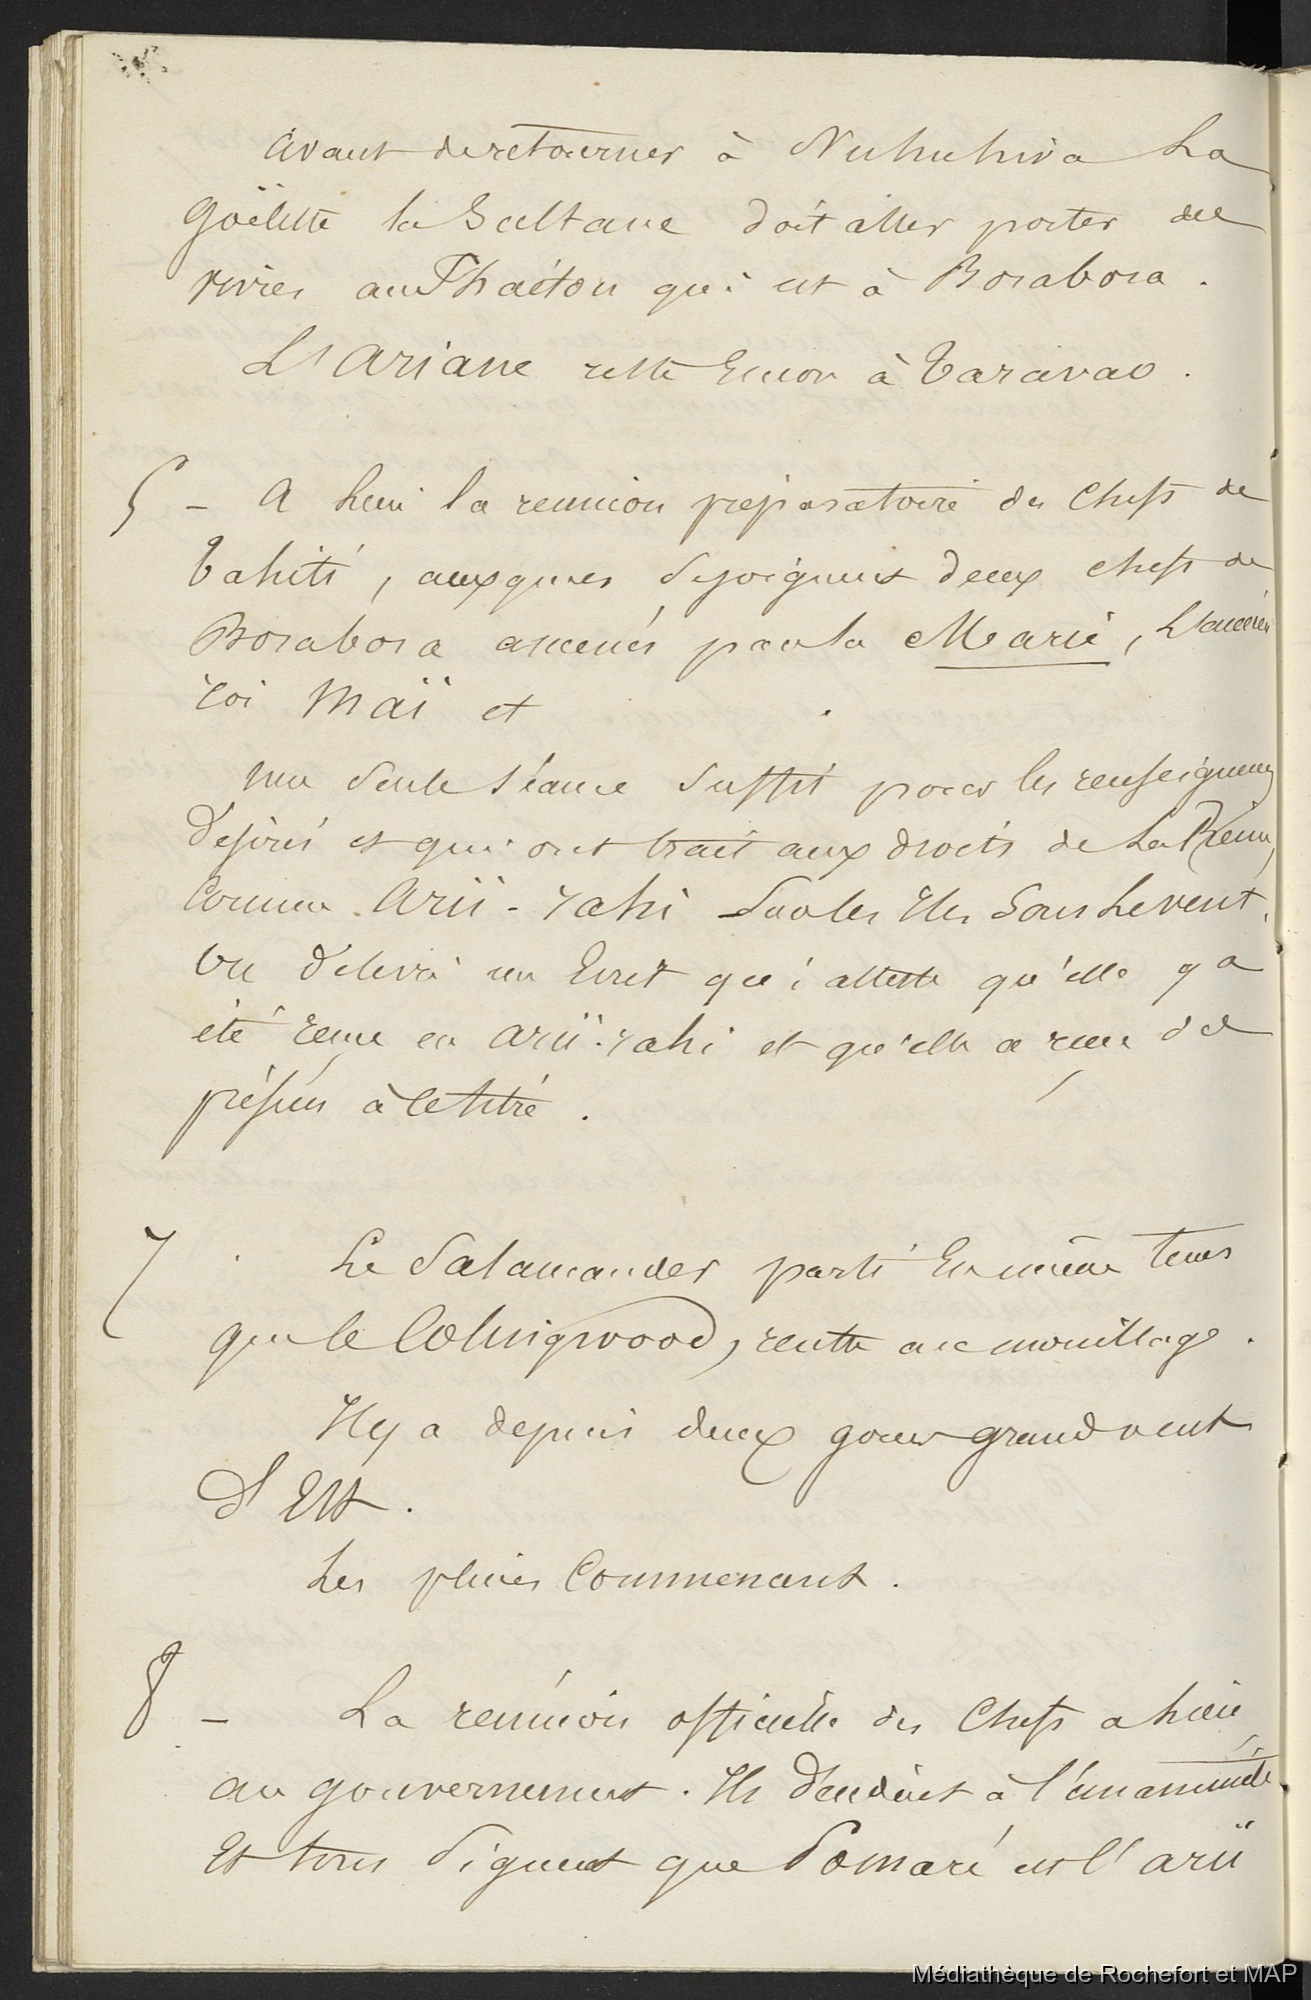 Avant de retourner à Nuhuhiva La
goëlette la Sultane doit aller porter des
vivres au Phaéton qui est à Borabora.
L'Ariane reste Encor à Taravao.
5 - A lieu la reunion preparatoire des Chefs de
Tahiti, auxquels se joignent deux chefs de
Borabora amenés par la Marie, L'ancien
roi Maï et
une seule séance suffit pour les renseignemens
desirés et qui ont trait aux droits de La Reine,
Comme Arii-rahi sur les Iles Sous Le vent.
On délivra un Ecrit qui atteste qu'elle y a
été reçue en Arii-rahi et qu'elle a reçu des
présens à ce titre.
7 Le Salamander parti En même tems
que le Collingwood, rentre au mouillage.
Il y a depuis deux jours grand vent
d'Est.
Les pluies Commencent.
8 - La reunion officielle des Chefs a lieu
au gouvernement. Ils décident à l'unanimité
Et tous signent que Pomaré est l'arii
Médiathèque de Rochefort et MAP